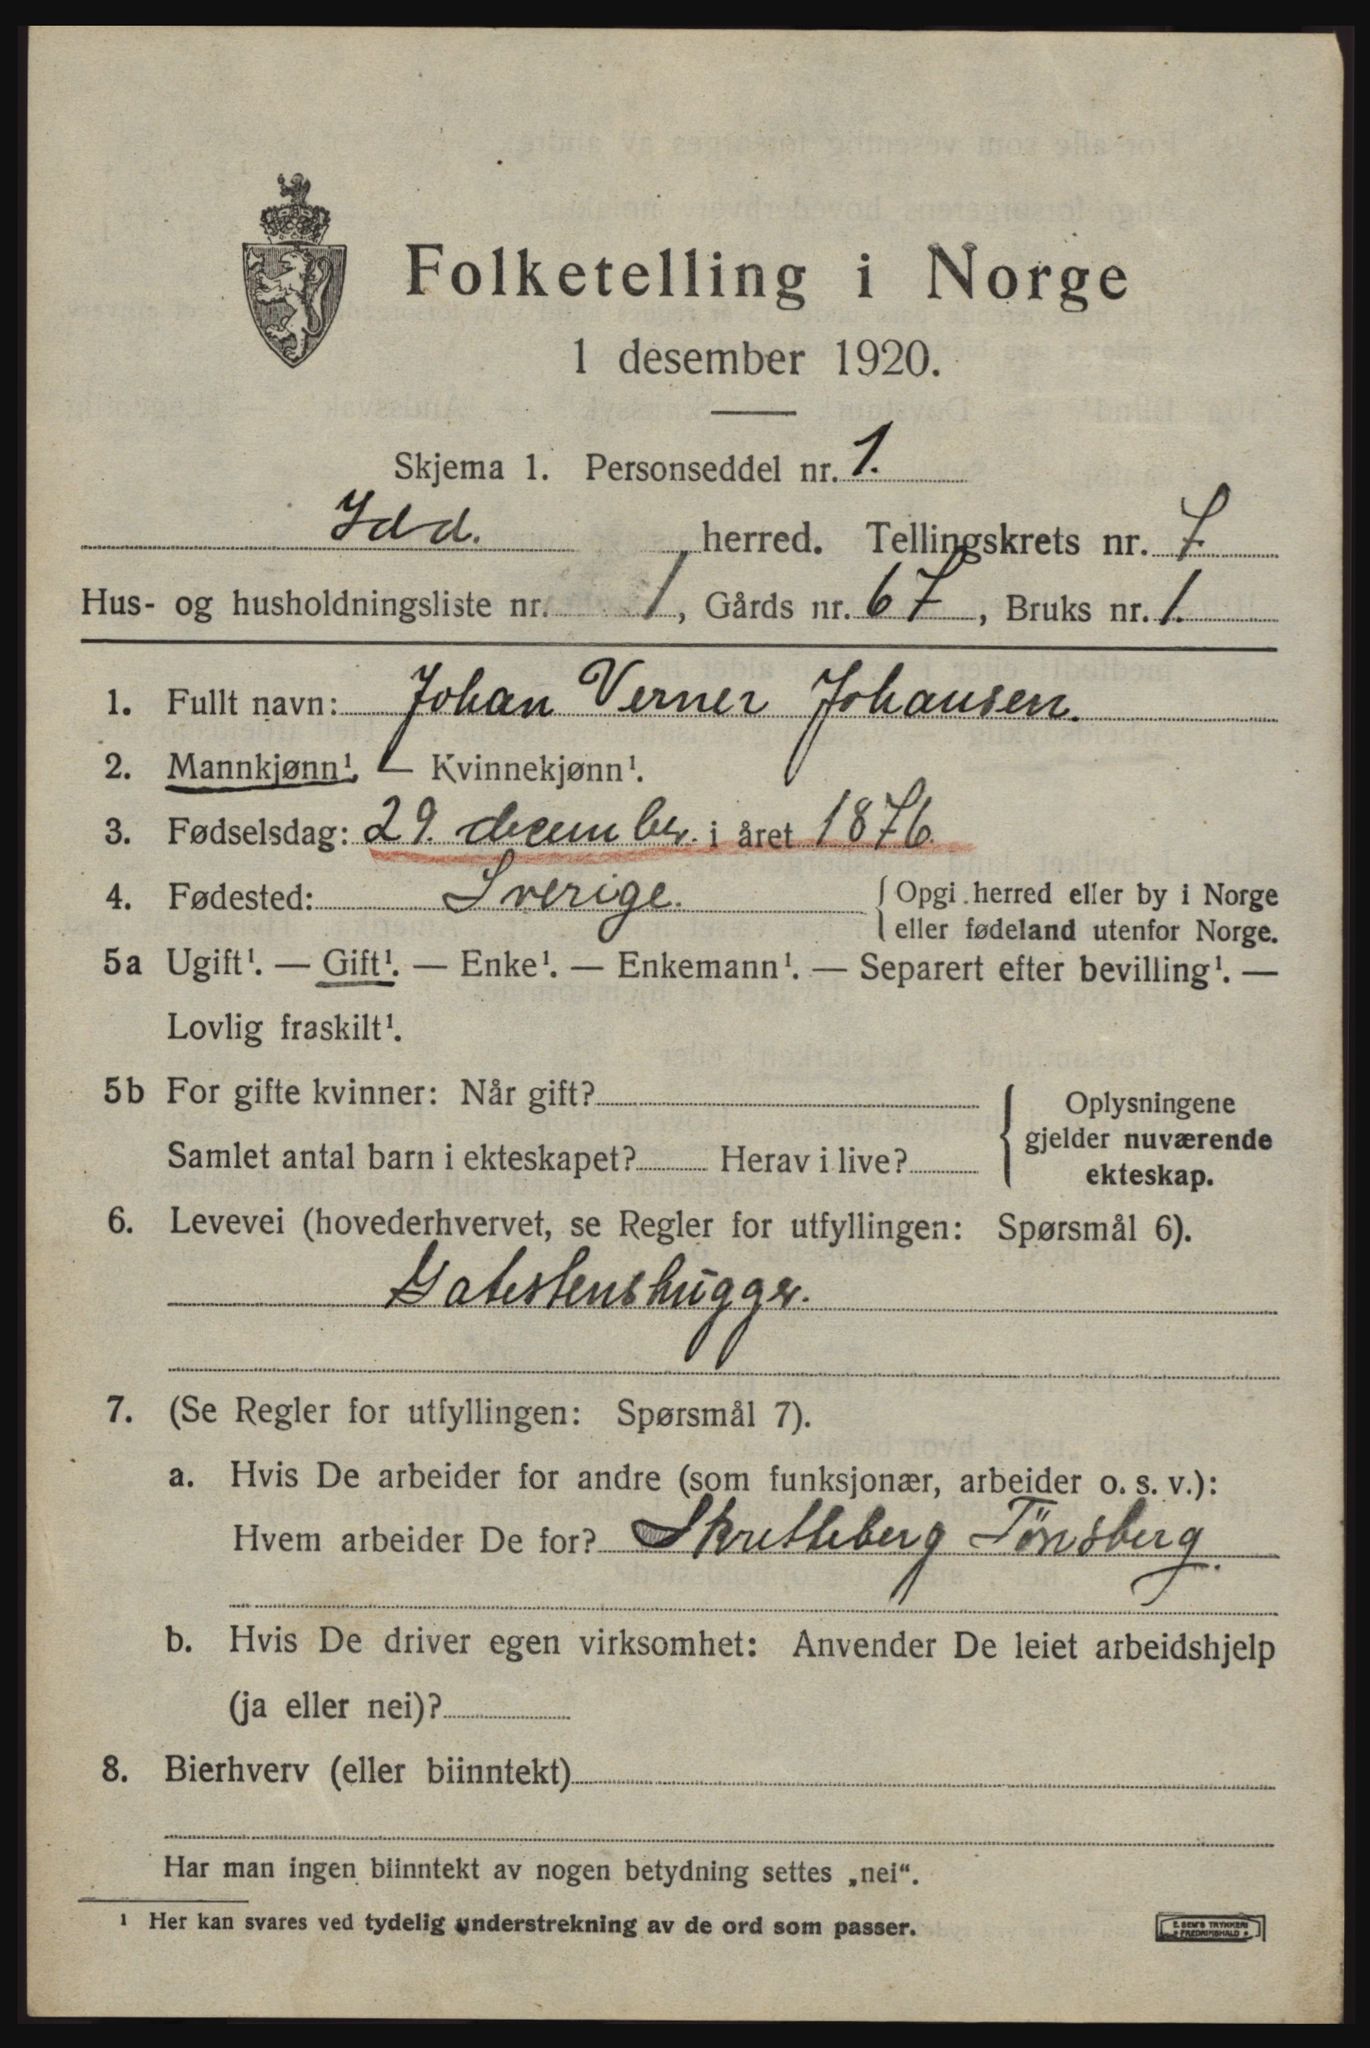 Folketelling i Norge
1 desember 1920.
Skjema 1. Personseddel nr. 1.
Idd. herred. Tellingskrets nr. 7
Hus- og husholdningsliste nr. 1, Gårds nr. 67, Bruks nr. 1.
1. Fullt navn: Johan Verner Johansen.
2. Mannkjønn¹. — Kvinnekjønn¹.
3. Fødselsdag: 29. december. i året 1876.
4. Fødested: Sverige. { Opgi herred eller by i Norge
eller fødeland utenfor Norge.
5a Ugift¹. — Gift¹. — Enke¹. — Enkemann¹. — Separert efter bevilling¹. —
Lovlig fraskilt¹.
5b For gifte kvinner: Når gift?
Samlet antal barn i ekteskapet? Herav i live?
{ Oplysningene
gjelder nuværende
ekteskap.
6. Levevei (hovederhvervet, se Regler for utfyllingen: Spørsmål 6).
Gatestenshugger.
7. (Se Regler for utfyllingen: Spørsmål 7).
a. Hvis De arbeider for andre (som funksjonær, arbeider o. s. v.):
Hvem arbeider De for? Skretteberg Tønsberg.
b. Hvis De driver egen virksomhet: Anvender De leiet arbeidshjelp
(ja eller nei)?
8. Bierhverv (eller biinntekt)
Har man ingen biinntekt av nogen betydning settes „nei“.
¹ Her kan svares ved tydelig understrekning av de ord som passer.
E. SEM'S TRYKKERI
FREDRIKSHALD